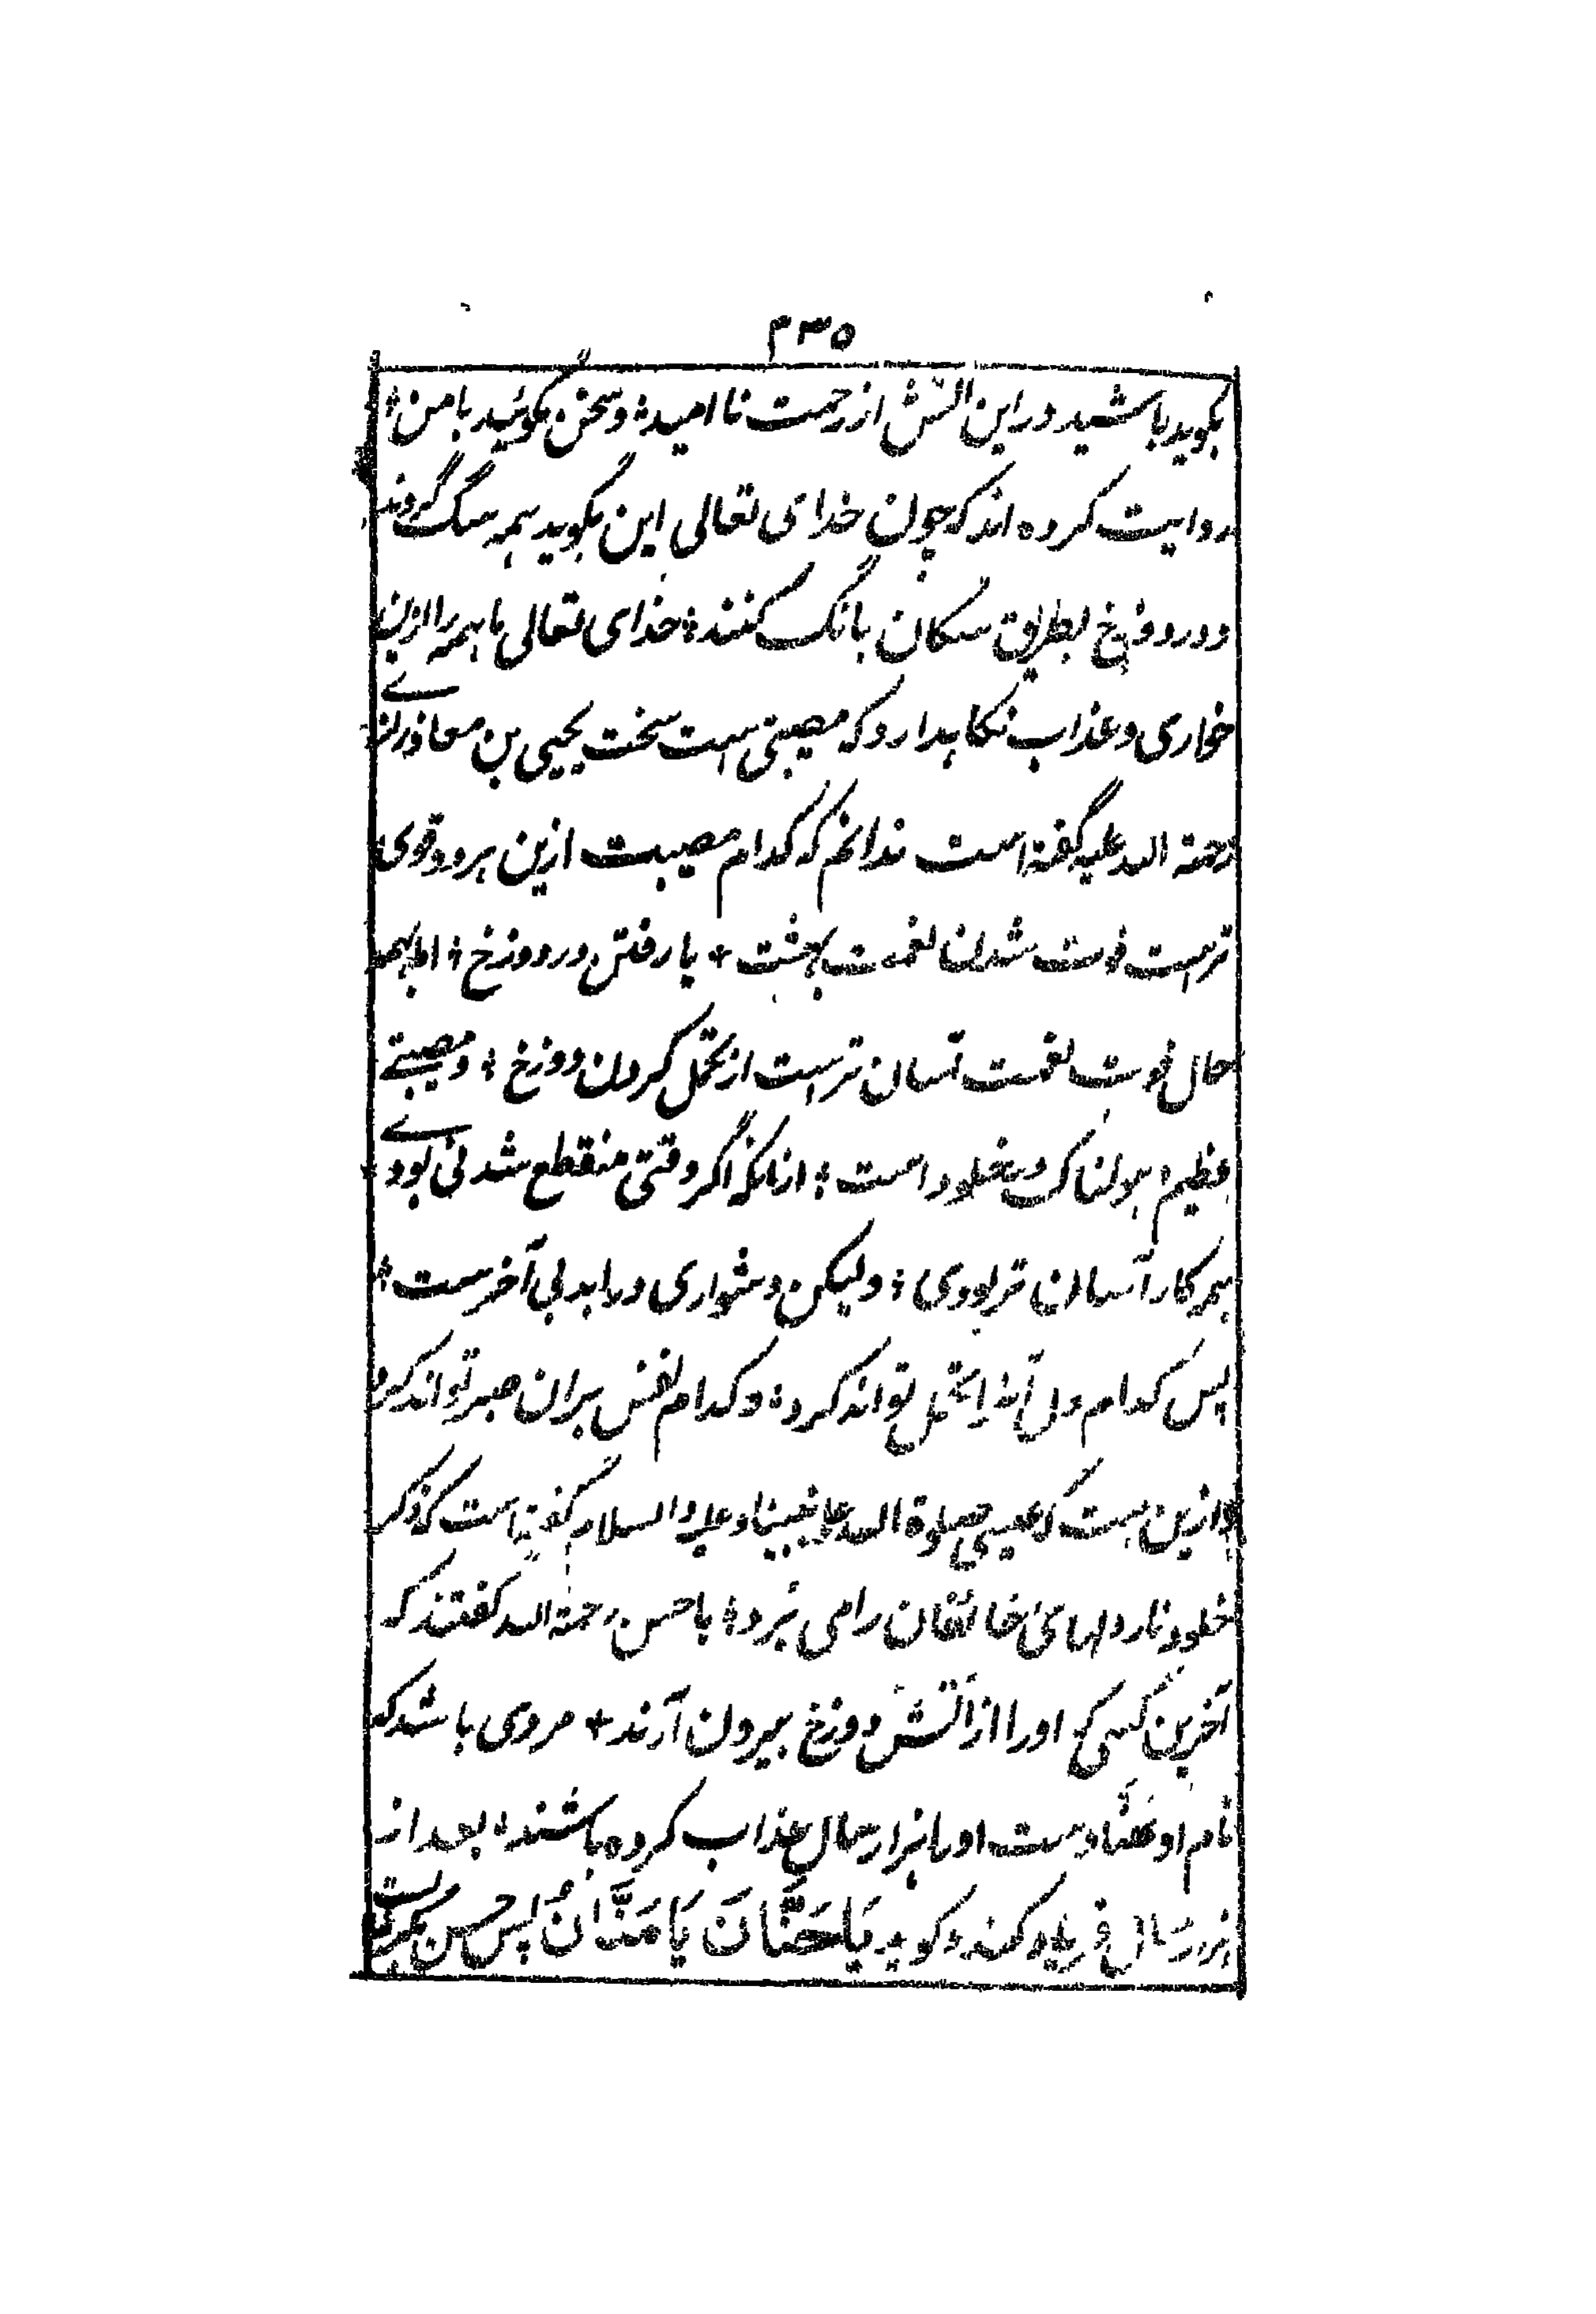 ۴۳۵
بگوید باشید در این آتش از رحمت نا امید؛ و سخن مگوئید با من؛
روایت کرده اند که چون خدای تعالی این بگوید همه سگ گردند
و در دوزخ بطریق سگان بانگ کنند؛ خدای تعالی ما همه را ازین
خواری و عذاب نگاهدارد که مصیبتی است سخت یحیی بن معاذ رازے
رحمة الله علیه گفته است ندانم که کدام مصیبت ازین هر دو قوی
تر است فوت شدن نعمت بهشت + یا رفتن در دوزخ؛ اما بهمه
حال فوت نعمت آسان تر است از تحمل کردن دوزخ؛ و مصیبتے
عظیم هولناک خلود است؛ ازانکه اگر وقتی منقطع شدنی بودے
همه کار آسان تر بودی؛ ولیکن دشواری در ابد بی آخرست؛
پس کدام دل آنرا تحمل تواند کرد؛ و کدام نفس بران صبر تواند کرد
و ازین است که عیسی صلوة الله علی نبینا و علیه والسلام گفته است که ذکر
خلود نار دلهائ خائفان را می برد؛ با حسن رحمة الله گفتند که
آخرین کسی که او را از آتش دوزخ بیرون آرند + مردی باشد که
نام او هناد ست او را هزار سال عذاب کرده باشند؛ بعد از
هزار سال فریاد کند و گوید یَا حَنَّانَ یَا مَنَّانُ پس حسن بگریست